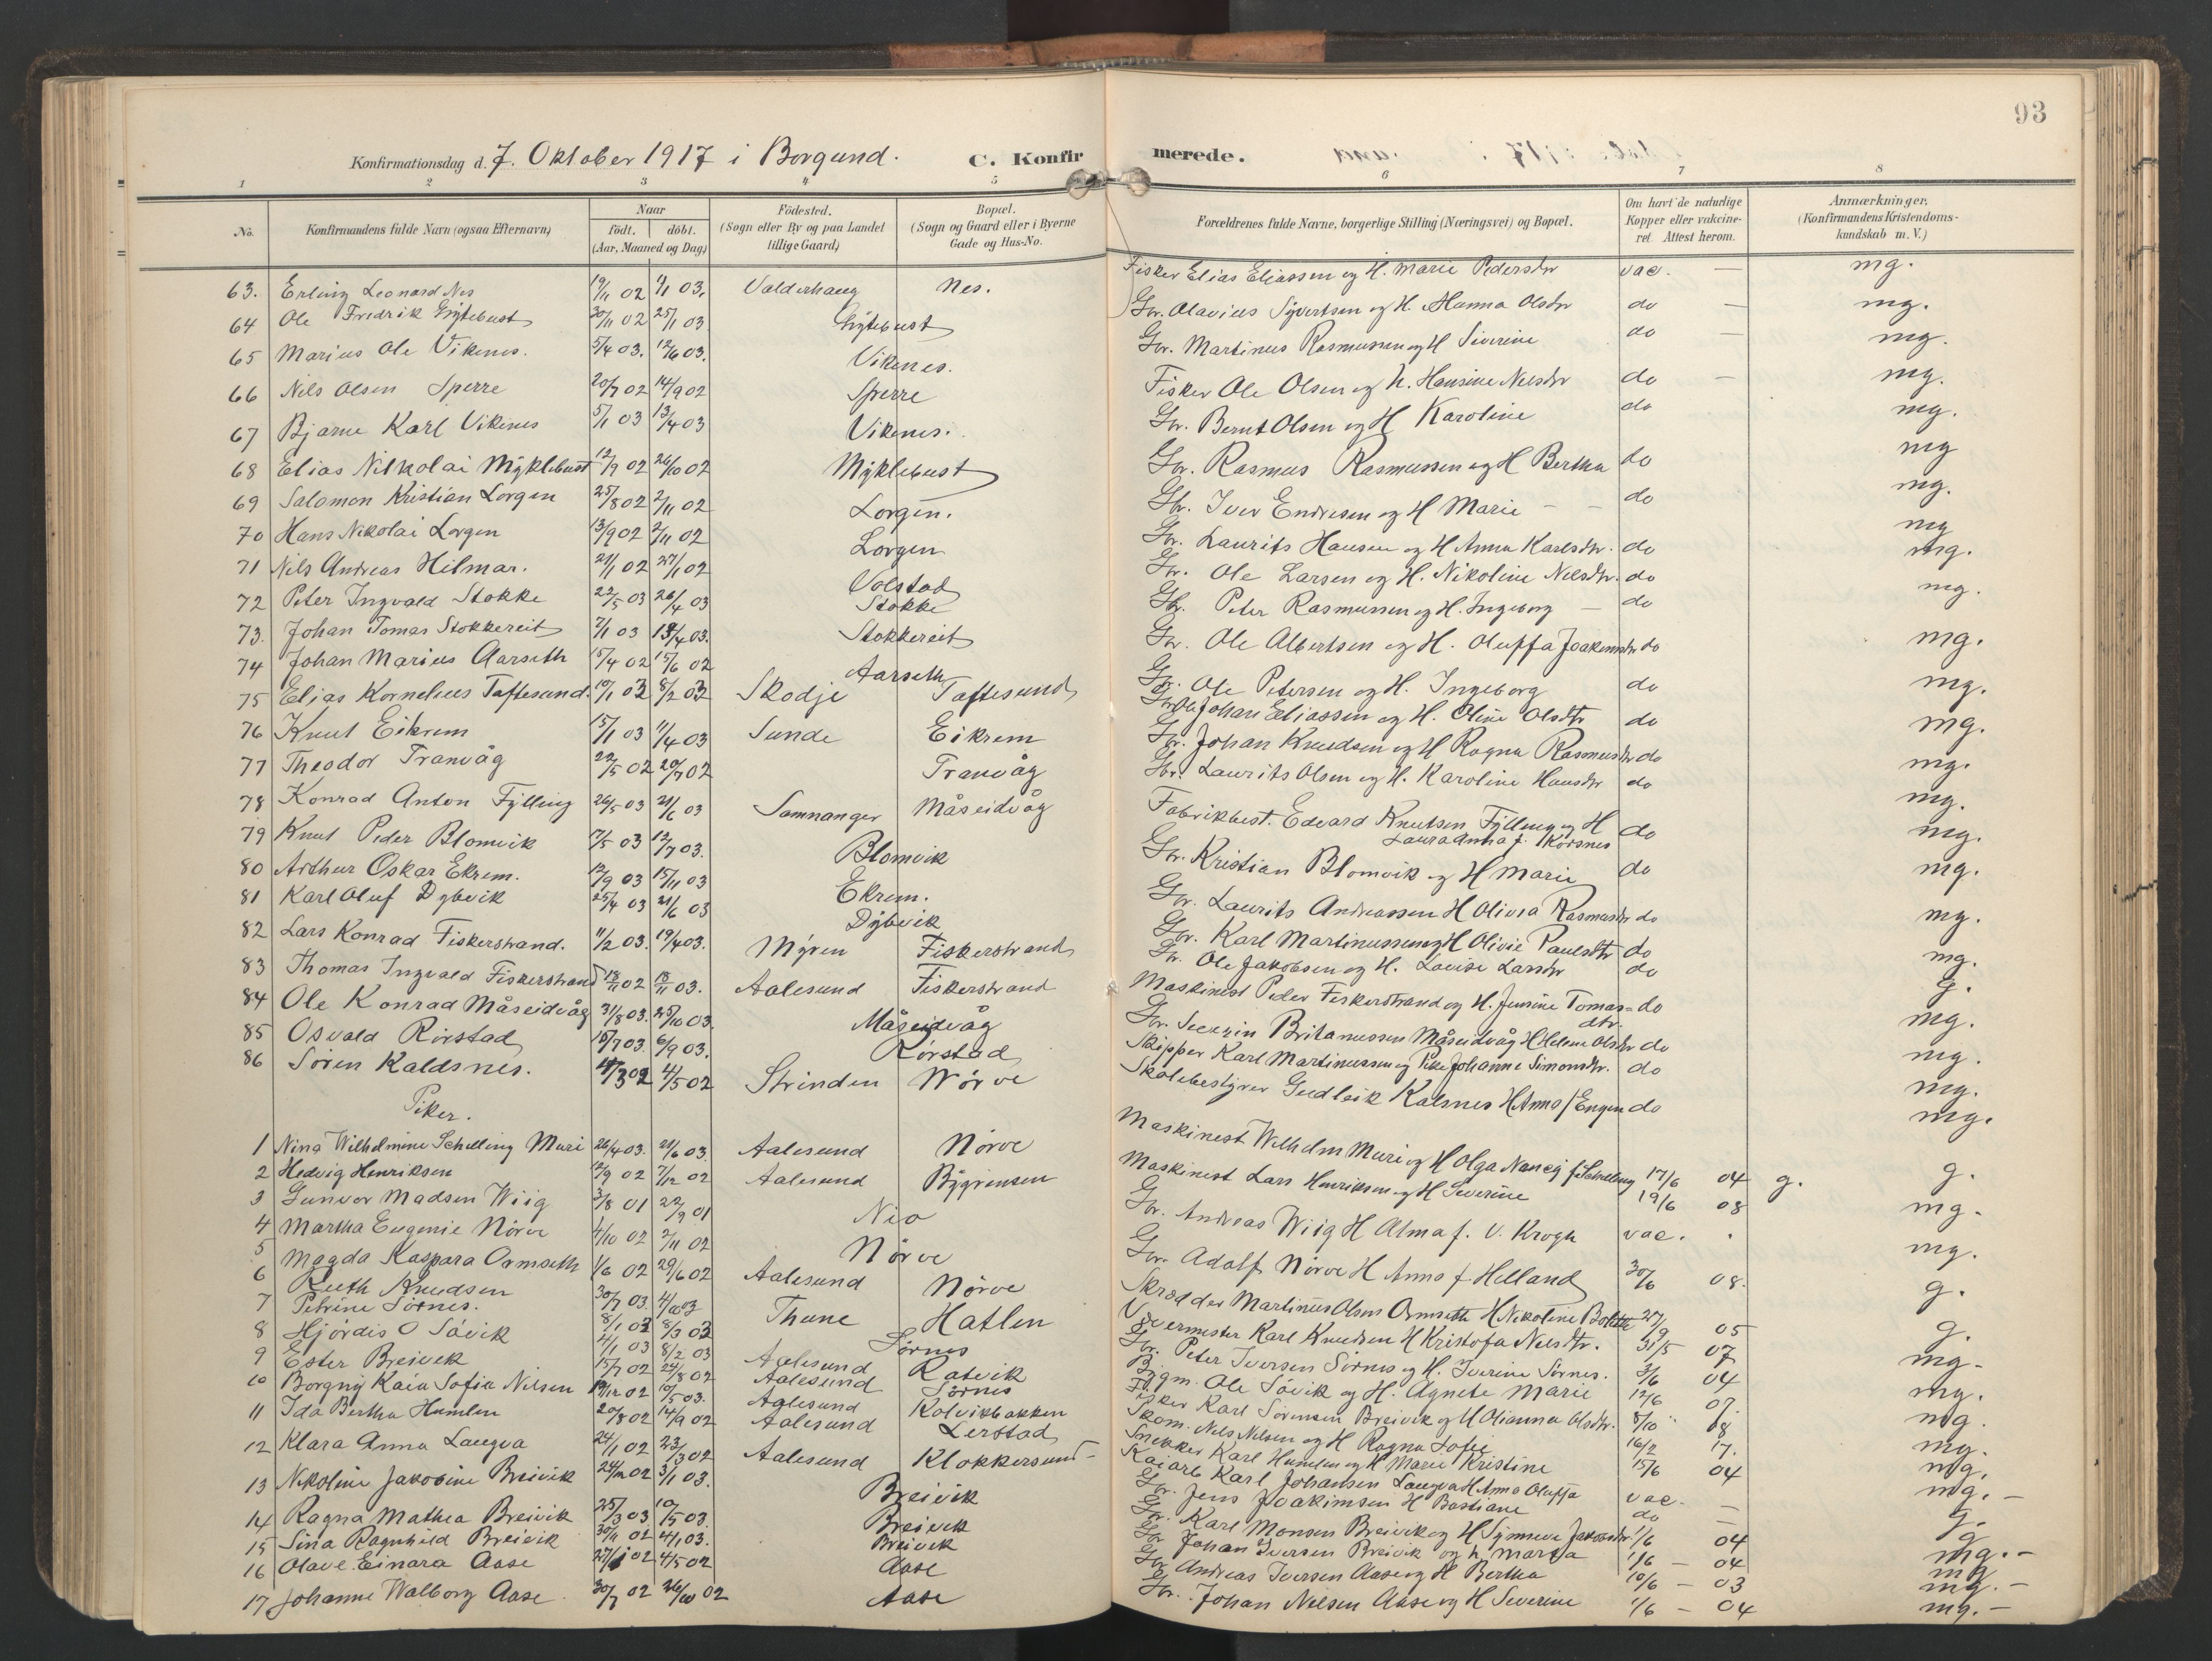 93
Konfirmationsdag d. 7. Oktober 1917 i Borgund. C. Konfirmerede.
1 2 3 4 5 6 7 8
No. Konfirmandens fulde Navn (ogsaa Efternavn) Naar födt. döbt. (Aar, Maaned og Dag) Födested. (Sogn eller By og paa Landet tillige Gaard) Bopæl. (Sogn og Gaard eller i Byerne Gade og Hus-No. Forældrenes fulde Navne, borgerlige Stilling (Næringsvei) og Bopæl. Om havt de naturlige Kopper eller vakcineret. Attest herom. Anmærkninger. (Konfirmandens Kristendomskundskab m. V.)
63. Erling Leonard Nes 19/11 02 1/1 03. Valderhaug Nes. Fisker Elias Eliassen og H. Marie Pedersdtr vac. — mg.
64 Ole Fredrik Gjytebust 30/11 02 25/1 03 Gjytebust Gbr. Olavius Syvertsen og H. Hanna Olsdtr do — mg.
65 Marius Ole Vikenes. 5/4 03. 12/6 03. Vikenes. Gbr. Martinus Rasmussen og H Siverine do — mg.
66 Nils Olsen Sperre 20/7 02 14/9 02 Sperre Fisker Ole Olsen og h. Hansine Nilsdtr do — mg.
67 Bjarne Karl Vikenes 5/1 03 13/4 03 Vikenes. Gbr. Bernt Olsen og H Karoline do mg.
68 Elias Nilkolai Myklebust 12/9 02 26/10 02 Myklebust Gbr. Rasmus Rasmussen og H Bertha do mg
69 Salomon Kristian Lorgen 25/8 02 2/11 02 Lorgen. Gbr. Iver Endresen og H Marie - - do mg.
70 Hans Nikolai Lorgen 13/9 02 2/11 02 Lorgen Gbr. Laurits Hansen og H Anna Karlsdtr. do mg
71 Nils Andreas Hilmar. 21/1 02 27/1 02 Volstad Gbr. Ole Larsen og H. Nikoline Nilsdtr. do mg.
72 Peter Ingvald Stokke 22/5 03 26/4 03 Stokke Gbr. Peter Rasmussen og H. Ingeborg — do mg.
73. Johan Tomas Stokkereit 7/1 03 13/4 03. Stokkereit Gbr. Ole Albertsen og H. Oluffa Joakimsdtr do mg.
74 Johan Marius Aarseth 15/4 02 15/6 02 Aarseth Gbr. Ole Petersen og H. Ingeborg do mg.
75 Elias Kornelius Taftesund. 10/1 03 8/2 03 Skodje Taftesund Johan Eliassen og H. Oline Olsdtr do mg.
76 Knut Eikrem 15/1 03 11/4 03 Sunde Eikrem Gbr. Johan Knudsen og H Ragna Rasmusdtr do mg.
77 Theodor Tranvåg 22/5 02 20/7 02 Tranvåg Gbr. Laurits Olsen og H. Karoline Hansdtr do mg.
78 Konrad Anton Fylling 26/5 03 21/6 03 Samnanger Måseidvåg Fabrikbest. Edvard Knutsen Fylling og H Laura Anna f. Korsnes do mg.
79 Knut Peder Blomvik 17/5 03 12/7 03. Blomvik Gbr. Kristian Blomvik og H Marie do mg.
80 Arthur Oskar Ekrem. 12/9 03 15/11 03 Ekrem. Gbr. Laurits Andreassen H Olivia Rasmusdtr do mg.
81 Karl Oluf Dybvik 25/4 03 21/6 03 Dybvik Gbr. Karl Martinussen og H Olivie Paulsdtr do mg.
82 Lars Konrad Fiskerstrand. 11/2 03. 19/4 03. Myren Fiskerstrand Gbr. Ole Jakobsen og H. Lovise Larsdtr do g.
83 Thomas Ingvald Fiskerstrand 18/11 02 18/11 03. Aalesund Fiskerstrand Maskinist Peder Fiskerstrand og H. Jensine Tomasdtr. do mg.
84 Ole Konrad Måseidvåg 31/8 03. 25/10 03. Måseidvåg Gbr. Severin Britanussen Måseidvåg H Helene Olsdtr do mg.
85 Osvald Rörstad 15/7 03. 6/9 03. Rörstad Skipper Karl Martinussen og Pike Johanne Simonsdtr. do mg.
86 Sören Kaldsnes. 4/3 02 4/5 02 Strinden Nörve Skolebestyrer Gudleik Kalsnes H Anna f Engen do mg.
Piker.
1 Nina Wilhelmine Schelling Muri 26/4 03. 21/6 03. Aalesund Nörve Maskinist Wilhelm Muri og H Olga Nancy f Schelling 17/6 04 g. g.
2 Hedvig Henriksen 12/9 02 7/12 02 Aalesund Bygrensen Maskinist Lars Henriksen og H Severine 19/6 08 mg.
3 Gunvor Madsen Wiig 3/8 01 22/9 01 Gbr. Andreas Wiig H Alma f. V. Krogh vac. mg.
4 Martha Eugenie Nörve 4/10 02 2/11 02 Nörve Gbr. Adolf Nörve H Anna f Helland 30/6 08. g.
5 Magda Kaspara Ormseth 1/6 02 29/6 02 Aalesund Nörve Skrædder Martinus Olsen Ormseth H Nikoline Bolette 27/9 05 g.
6 Ruth Knudsen 30/7 03. 4/10 03 Thune Hatlen Vævermester Karl Knudsen H Kristofa Nilsdtr. 31/5 07 mg.
7 Petrine Sörnes. 8/1 03 8/3 03 Sörnes Gbr. Peter Iversen Sörnes og H. Iverine Sörnes. 3/6 04 mg.
8 Hjördis O Sövik 4/1 03 8/2 03 Aalesund Ratvik Bygm. Ole Sövik og H. Agnete Marie 12/6 07. mg.
9 Ester Breivik 15/7 02 24/8 02 Aalesund Sörnes Fisker Karl Sörensen Breivik og H Olianna Olsdtr. 8/10 08 mg.
10 Borgny Kaia Sofie Nilsen 19/12 02 10/5 03. Aalesund Kolvikbakken Kom. Nils Nilsen og H Ragna Sofie 16/2 17. mg.
11 Ida Bertha Humlen 20/8 02 14/9 02 Aalesund Lerstad Snekker Karl Humlen og H Marie Kristine 15/6 04 mg.
12 Klara Anna Langva 24/1 02 23/3 02 Aalesund Klokkersund Kaiarb Karl Johansen Langva H Anna Oluffa vac. — g.
13 Nikoline Jakobine Breivik 24/11 02 3/1 03. Breivik Gbr. Jens Joakimsen H Bastiane do — g
14 Ragna Mathea Breivik 25/3 03 10/5 03. Breivik Gbr. Karl Monsen Breivik og H Synneve Jakobsdtr 1/6 04 mg.-
15 Sina Ragnhild Breivik 30/11 02 4/1 03. Breivik Gbr Johan Iversen Breivik og h. Marta 1/6 — 04 mg
16 Olave Einara Aase 27/1 02 4/5 02 Aase Gbr. Andreas Iversen Aase og H Bertha 10/6 — 03 mg.-
17 Johanne Walborg Aase 30/7 02 26/10 02 Aase Gbr. Johan Nilsen Aase og H Severine 1/6 — 04 mg.-